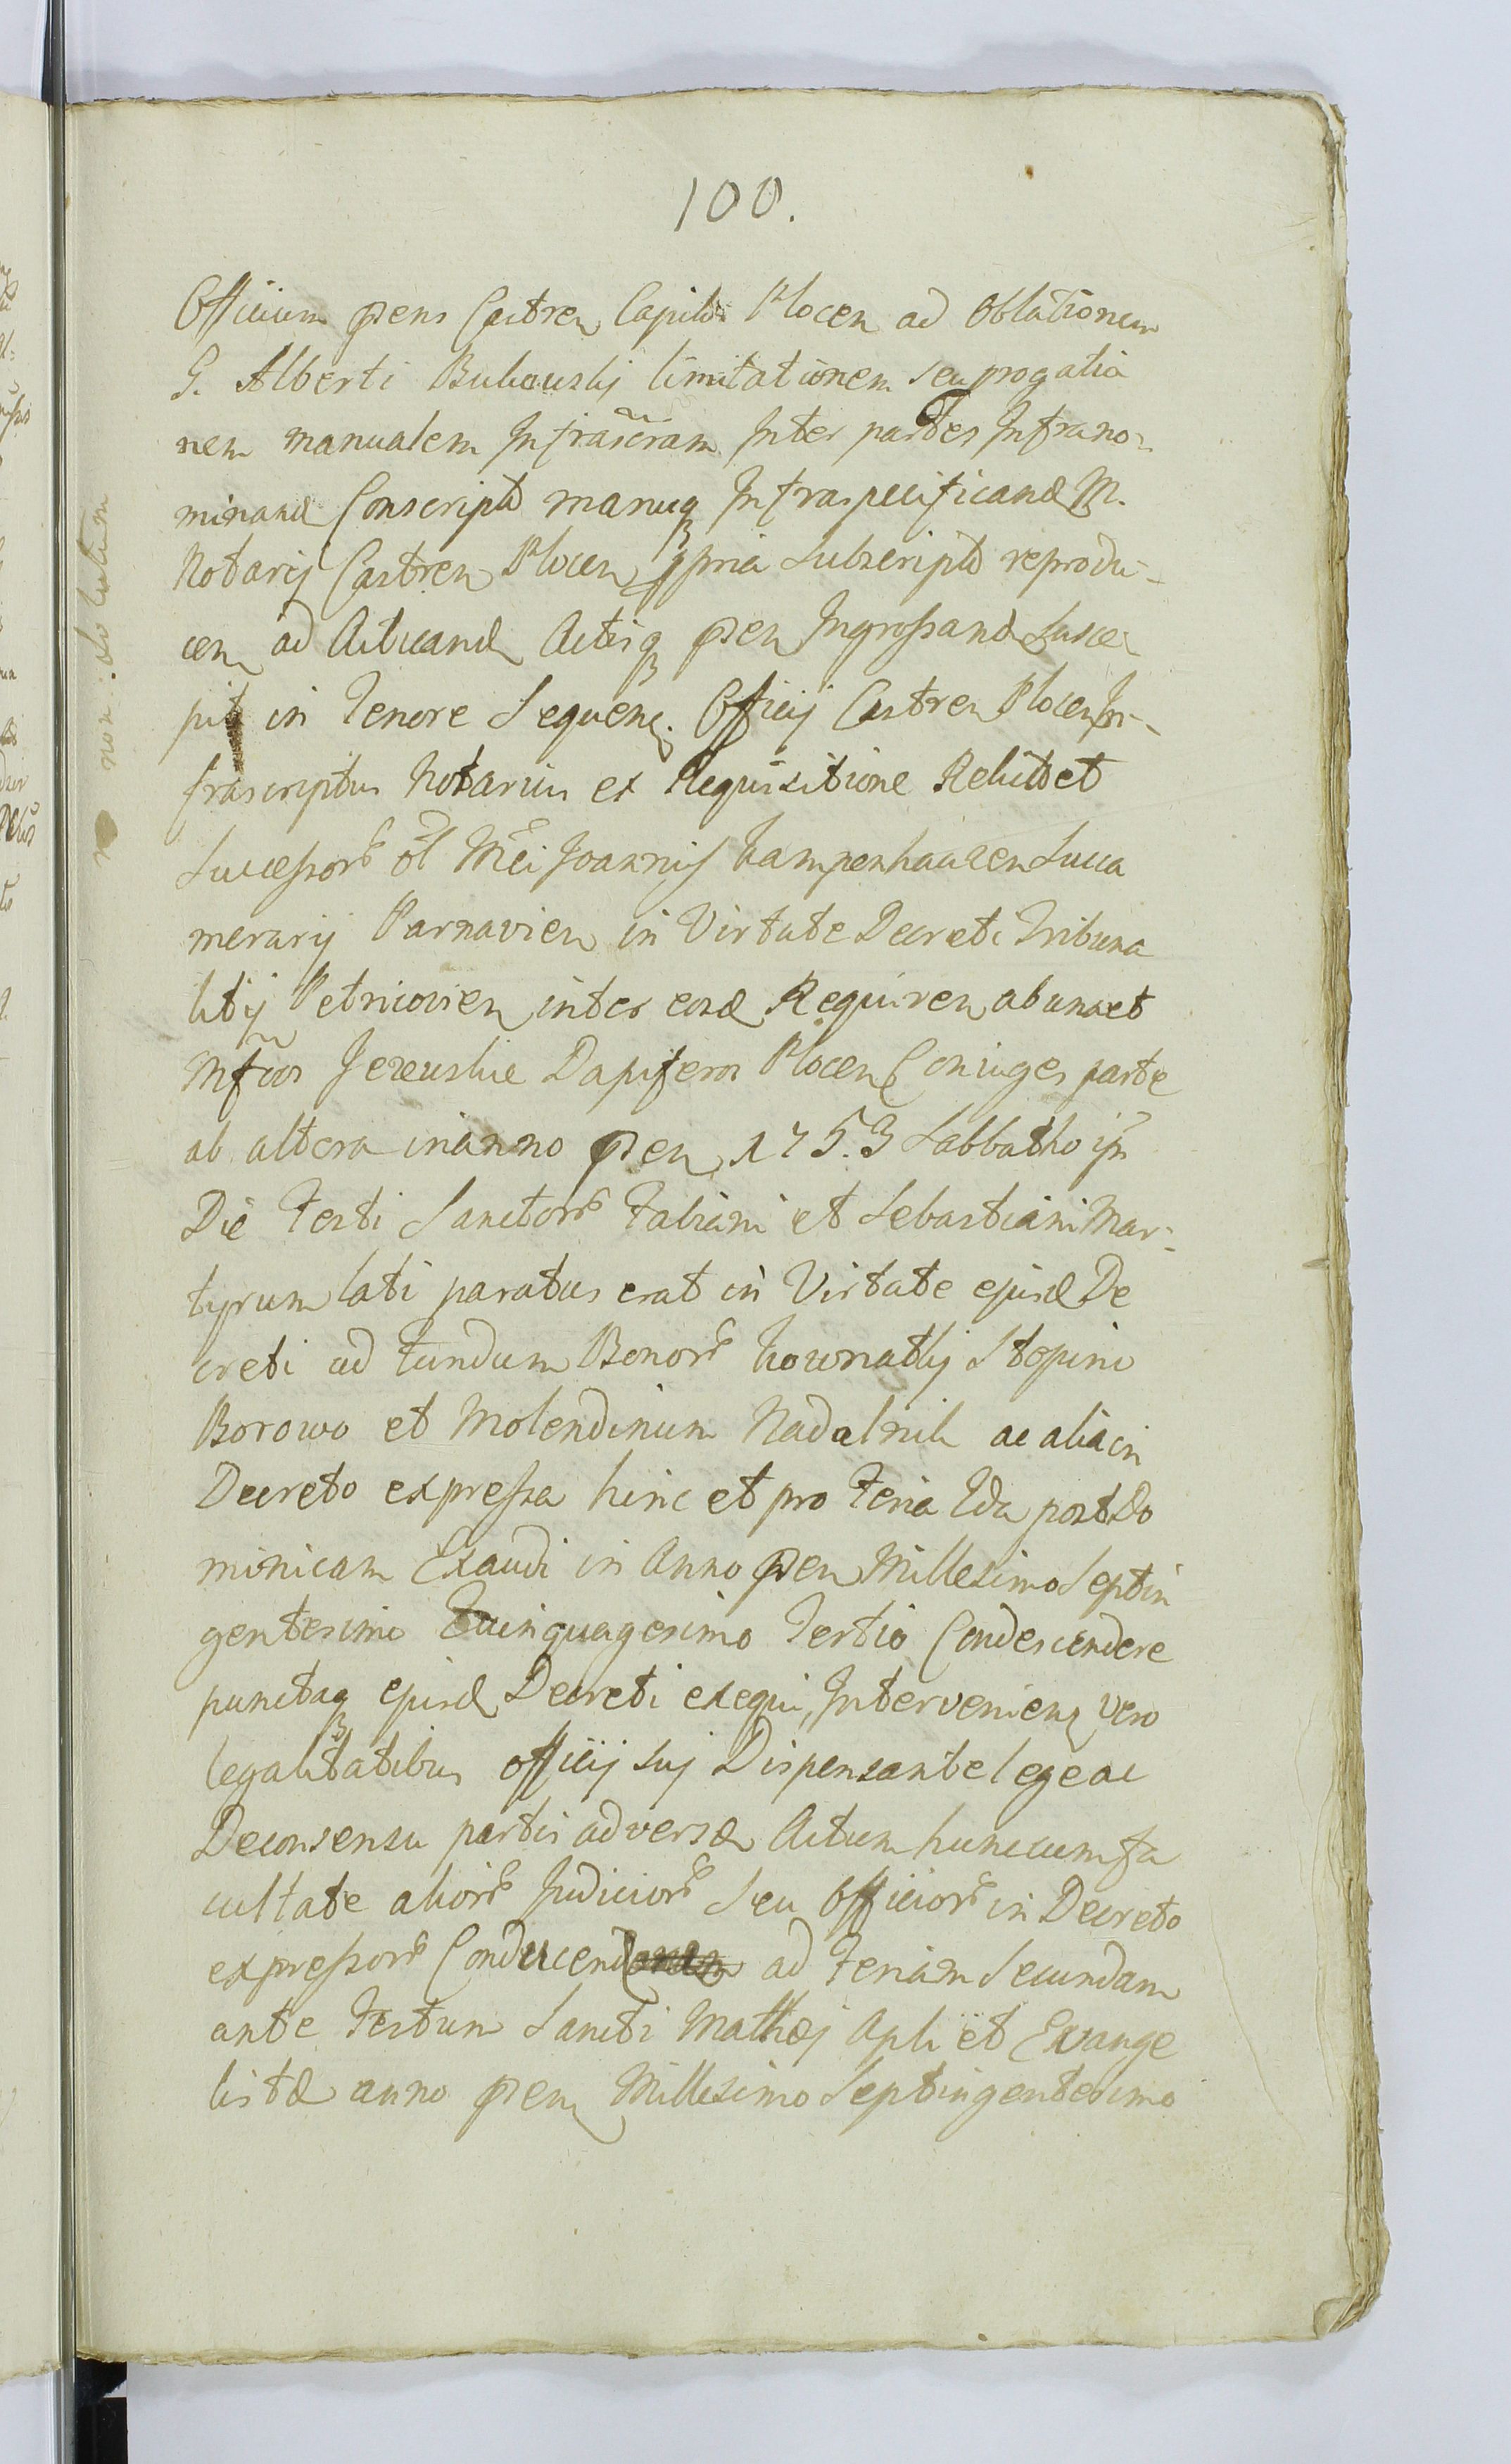 100.
Officium pens Castren Capitle Plocen ad Oblationem
G. Alberti Bukowskij limitationem seu progatio
nem manualem Infrascram Inter partes Infrano-
minand Conscriptã manuq Infraspecificand M.
Notarij Castren Plocen ppria Subscriptã reprodu-
cen ad Acticand Actisq pen Ingrossand Susce
pit in Tenore Sequenc. Officij Castren Plocen In-
frascriptus Notarius ex Requisitione Relict et
Successor ol Mci Joannis Kampenhausen Succa
merarij Parnavien in Virtute Decreti Tribuna
litij Petricovien inter eosd Requiren ab una et
Mfcos Jezewskie Dapiferos Plocen Coniuges parte
ab altera in anno pen 1753 Sabbatho ipso
Die Festi Sanctor Fabiani et Sebastiani Mar-
tyrum lati paratus erat in Virtute ejusd De
creti ad fundum Bonor Kownatky Stopino
Borowo et Molendinum Nadalnik ac alia in
Decreto expressa hinc et pro Feria 2da post Do
minicam Exaudi in Anno pen Millesimo Septin
gentesimo Quinquagesimo Tertio Condescendere
punctaq ejusd Decreti exequi, Intervenienq vero
legalitatibus officij sui Dispensante lege ac
De consensu partis adversæ Actum hunc cum fa
cultate alior Judicior seu Officior in Decreto
expressor Conducend ad Feriam Secundam
ante Festum Sancti Mathæj Apli et Evange
listæ anno pen Millesimo Septingentesimo